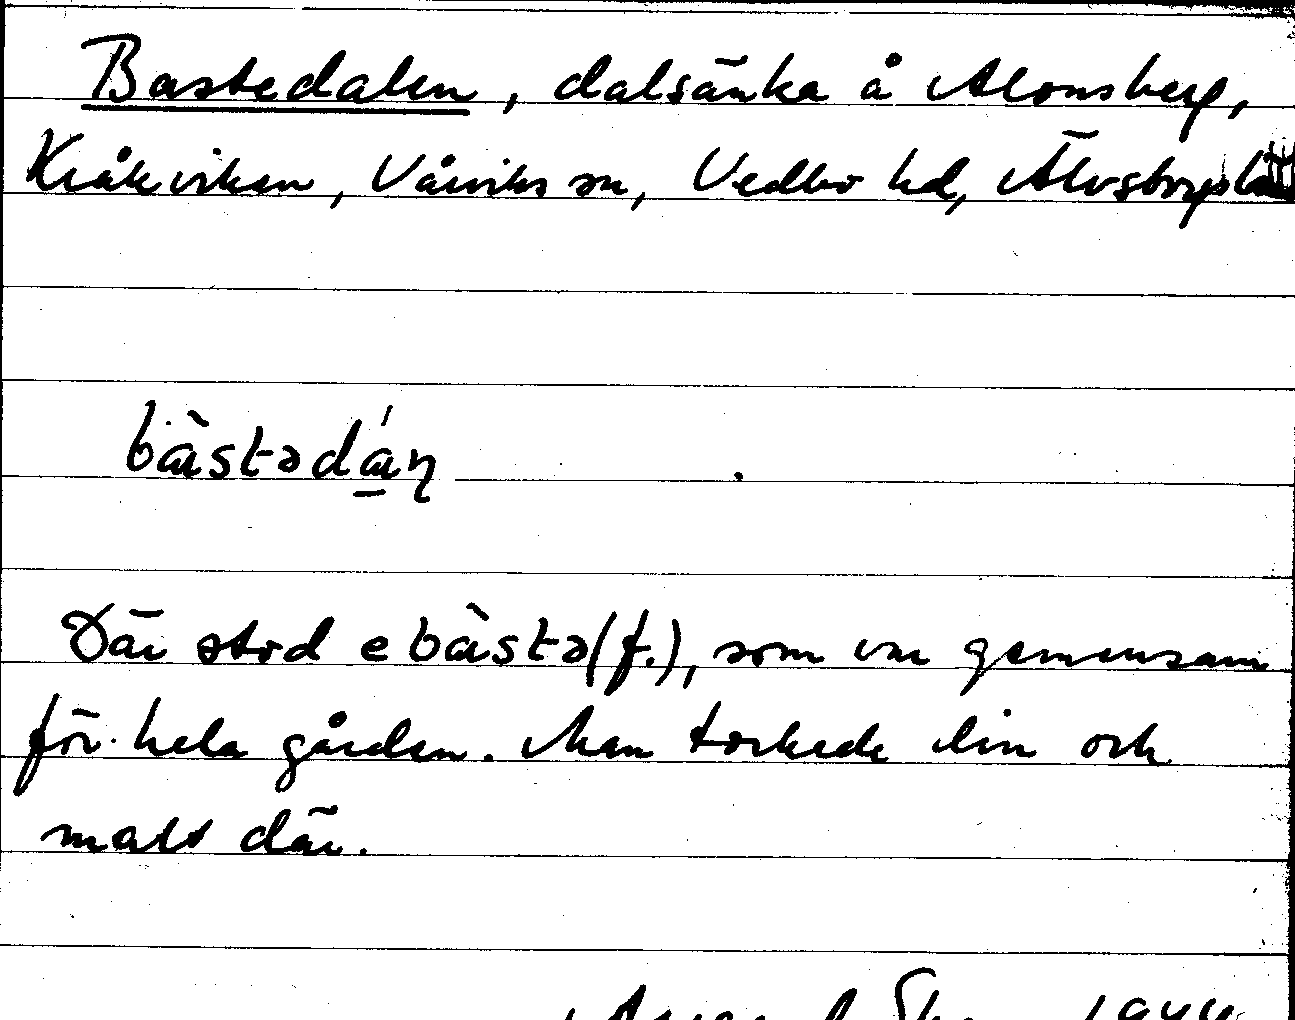 Bastedalen, dalsänka å Alonsberg,
Kråkviken, Vårviks sn, Vedbo hd, Älvsborgs län
bàstədáṇ
Där stod e bàstə (f.), som var gemensam
för hela gården. Man torkade lin och
malt där.